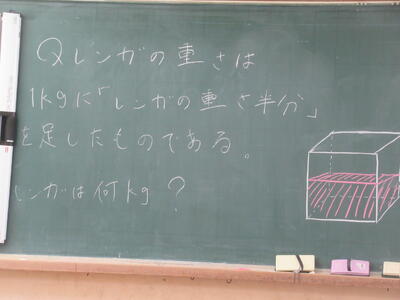 Qレンガの重さは
1kgに「レンガの重さ半分」
を足したものである。
レンガは何kg?